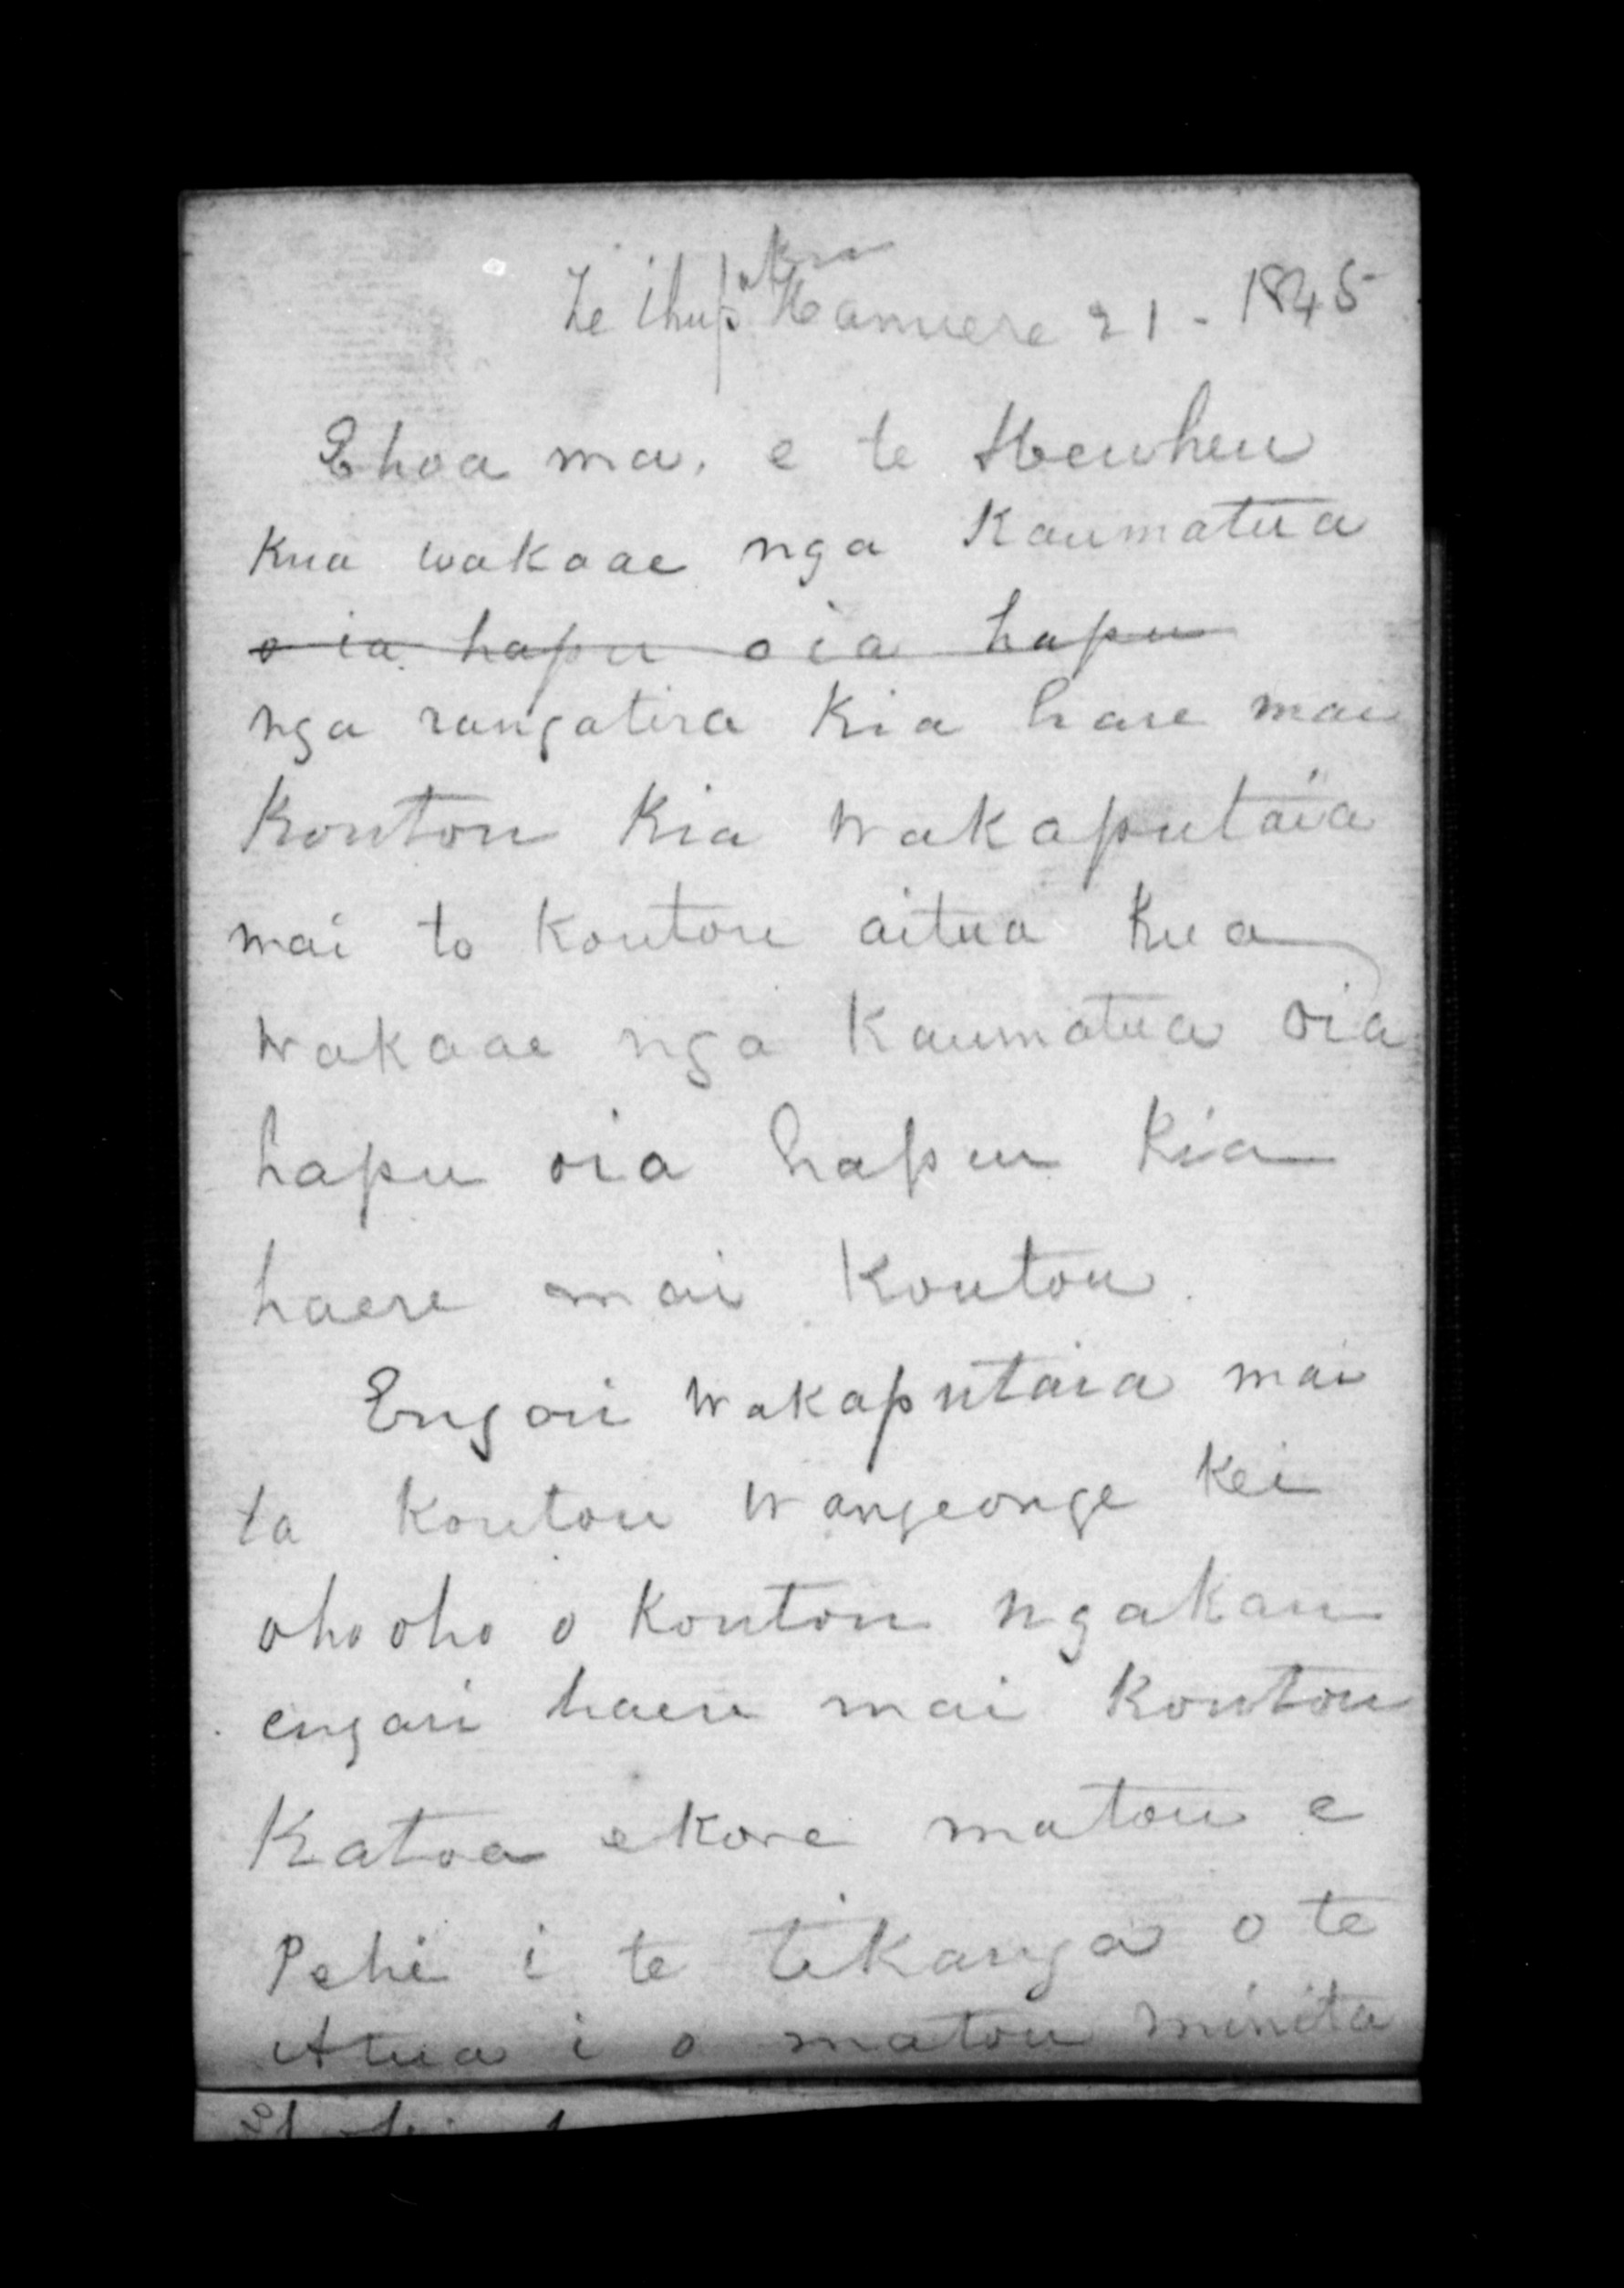 Te ihupuku Hanuere 21 - 1845
Ehoa ma. e te Heuheu
Kua wakaae nga Kaumatua
o ia hapu oia hapu
nga rangatira Kia haere mai
Koutou Kia wakaputaia
mai to Koutou aitua Kua
wakaae nga Kaumatua oia
hapu oia hapu Kia
haere mai Koutou.
Engari wakaputaia mai
ta Koutou wangeonge Kei
ohooho o Koutou ngakau
engari haere mai Koutou
Katoa ekore matou e
Pehi i te tikanga o te
Atua i o matou minita